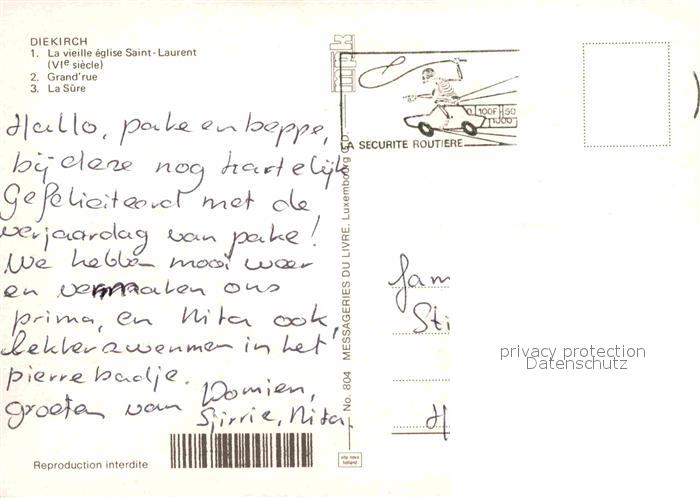 DIEKIRCH
1. La vieille église Saint-Laurent
(VIe siècle)
2. Grand'rue
3. La Sûre
Hallo, pake en beppe,
bij deze nog hartelijk
Gefeliciteerd met de
verjaardag van pake!
We hebben mooi weer
en vermaken ons
prima, en Nita ook,
lekker zwemmen in het
pierrebadje.
groeten van Womien,
Sjirrie, Nita.
Reproduction interdite
No. 804 MESSAGERIES DU LIVRE, Luxembourg
mdk
100F 50
1000
LA SECURITE ROUTIERE
Fam
Sti
H
vita nova
holland
privacy protection
Datenschutz